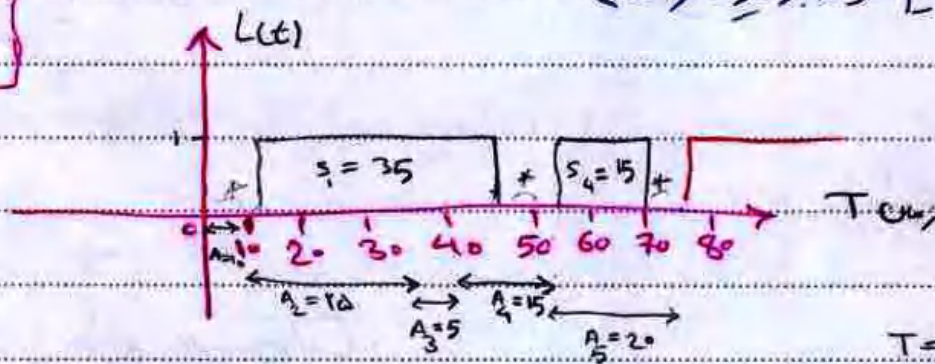 L(t)
1
S₁ = 35
*
S₄ = 15
*
T
0 10 20 30 40 50 60 70 80
A₂ = ۲۵
A₃ = 5
A₄ = 15
A₅ = 20
T =